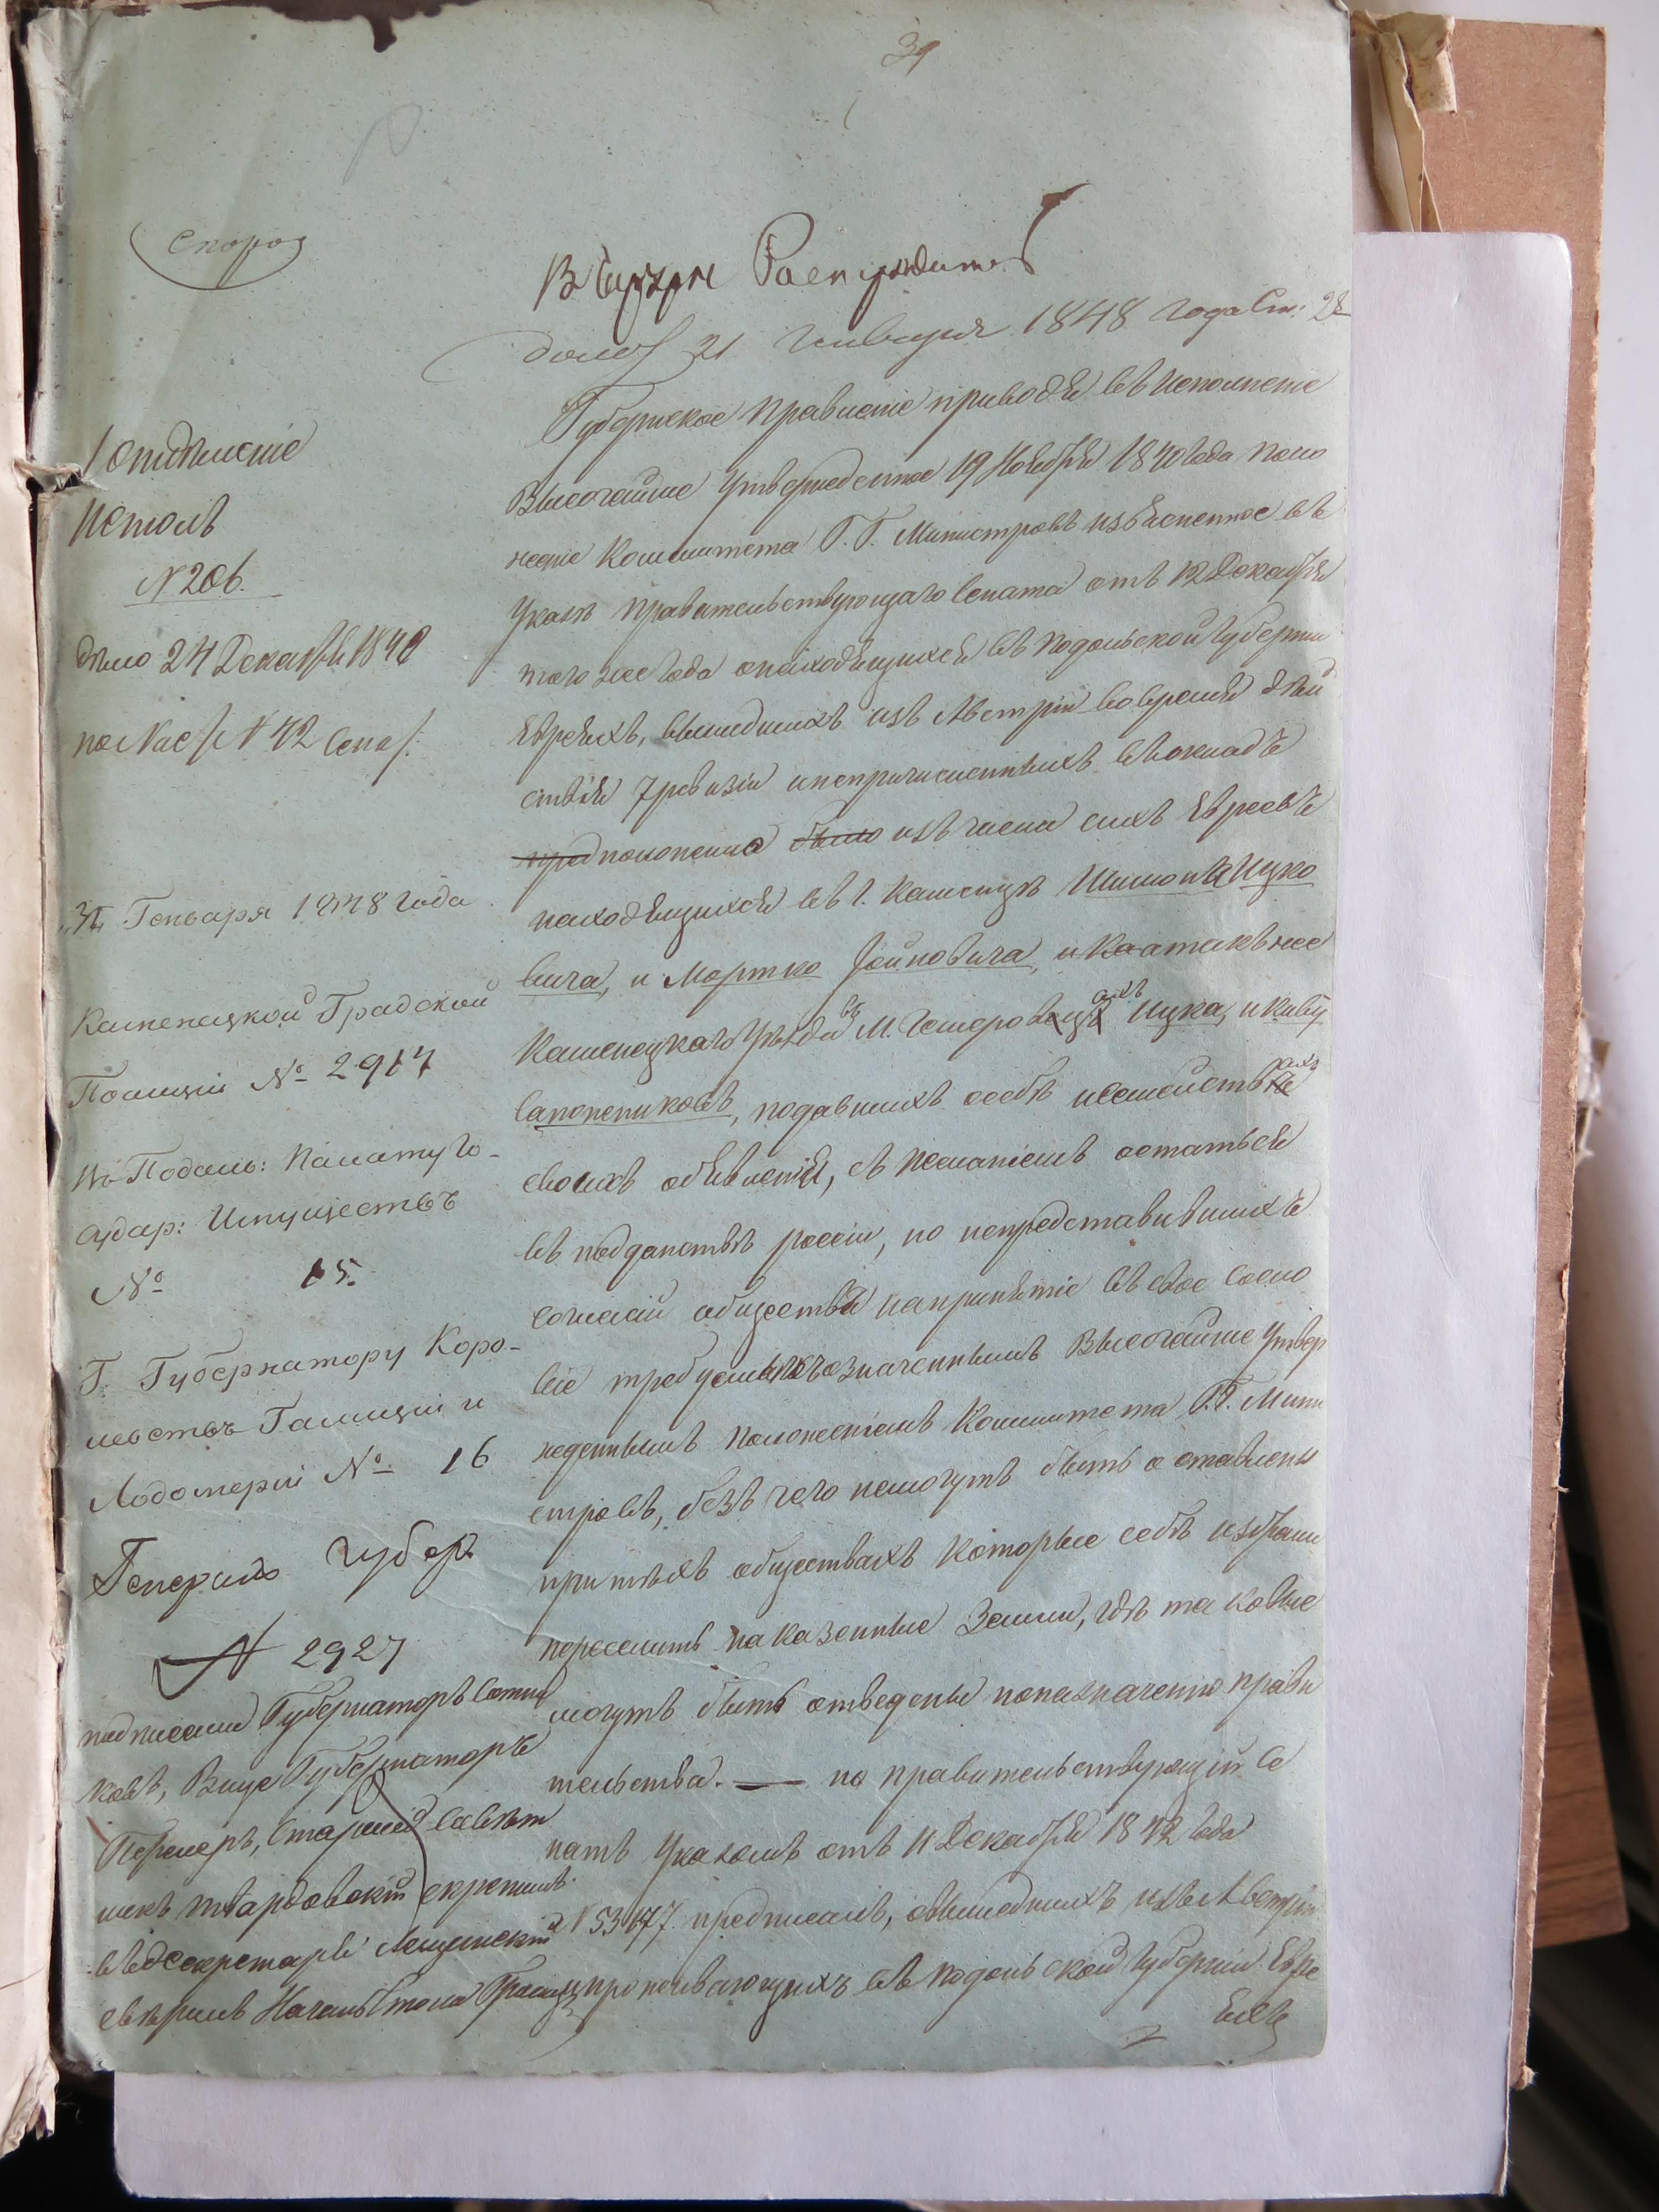 39
Скоро
21 Генваря 1848 года Ст: 28
1 отделеніе
Истолъ
N 206.
дѣло 24 Декабря 1840
по Нас N 42 Сена/:
31 Генваря 1848 года
Каменецкой Градской
Полиціи № 2914
Въ Подоль: Палату Го-
судар: Имуществъ
№ 15.
Г. Губернатору Коро-
левствъ Галиціи и
Лодомеріи № 16
Генералъ Губер
N 2927
подписали Губернаторъ Сотни
ковъ, Вице Губернаторъ
Старшій Совѣт
никъ Твардовскій скрепилъ
Секретарь Лещинскій
свѣрилъ Началь Стола
Губернское Правленіе приводя въ исполненіе
Высочайше утвержденное 19 Ноября 1840 года поло
женіе Коммитета Г.Г. Министровъ изъясненное въ
Указѣ Правительствующаго Сената отъ 12 Декабря
того же года о находящихся въ Подольской Губерніи
Евреяхъ, вышедшихъ изъ Австріи во время дѣй
ствія 7 ревизіи и непричисленныхъ въ окладъ
предположила было изъ числа сихъ Евреевъ
находящихся въ г. Каменцѣ Шимона Ицко
вича, и Мортко Іойновича, и Каатакъже
Каменецкаго Уѣзда въ М. Чемеровецъ ахъ Ицка, и Киву
Сапожниковъ, подавшихъ о себѣ и семействахъ
своихъ объявленія, съ желаніемъ остаться
въ подданствѣ россіи, но непредставившихъ
согласій общества на принятіе въ свое сосло
віе требуемыхъ означеннымъ Высочайше утвер
жденнымъ положеніемъ Коммитета Г.Г. Мини
стровъ, безъ чего немогутъ быть оставлены
при тѣхъ обществахъ которые себѣ избрали
переселить на казенные Земли, гдѣ таковые
могутъ быть отведены по назначенію прави
тельства. — но правительствующій Се
натъ Указомъ отъ 11 Декабря 1842 года
N 53677 предписалъ, о вышедшихъ изъ Австріи
и проживающихъ въ Подольской Губерніи Евре
яхъ